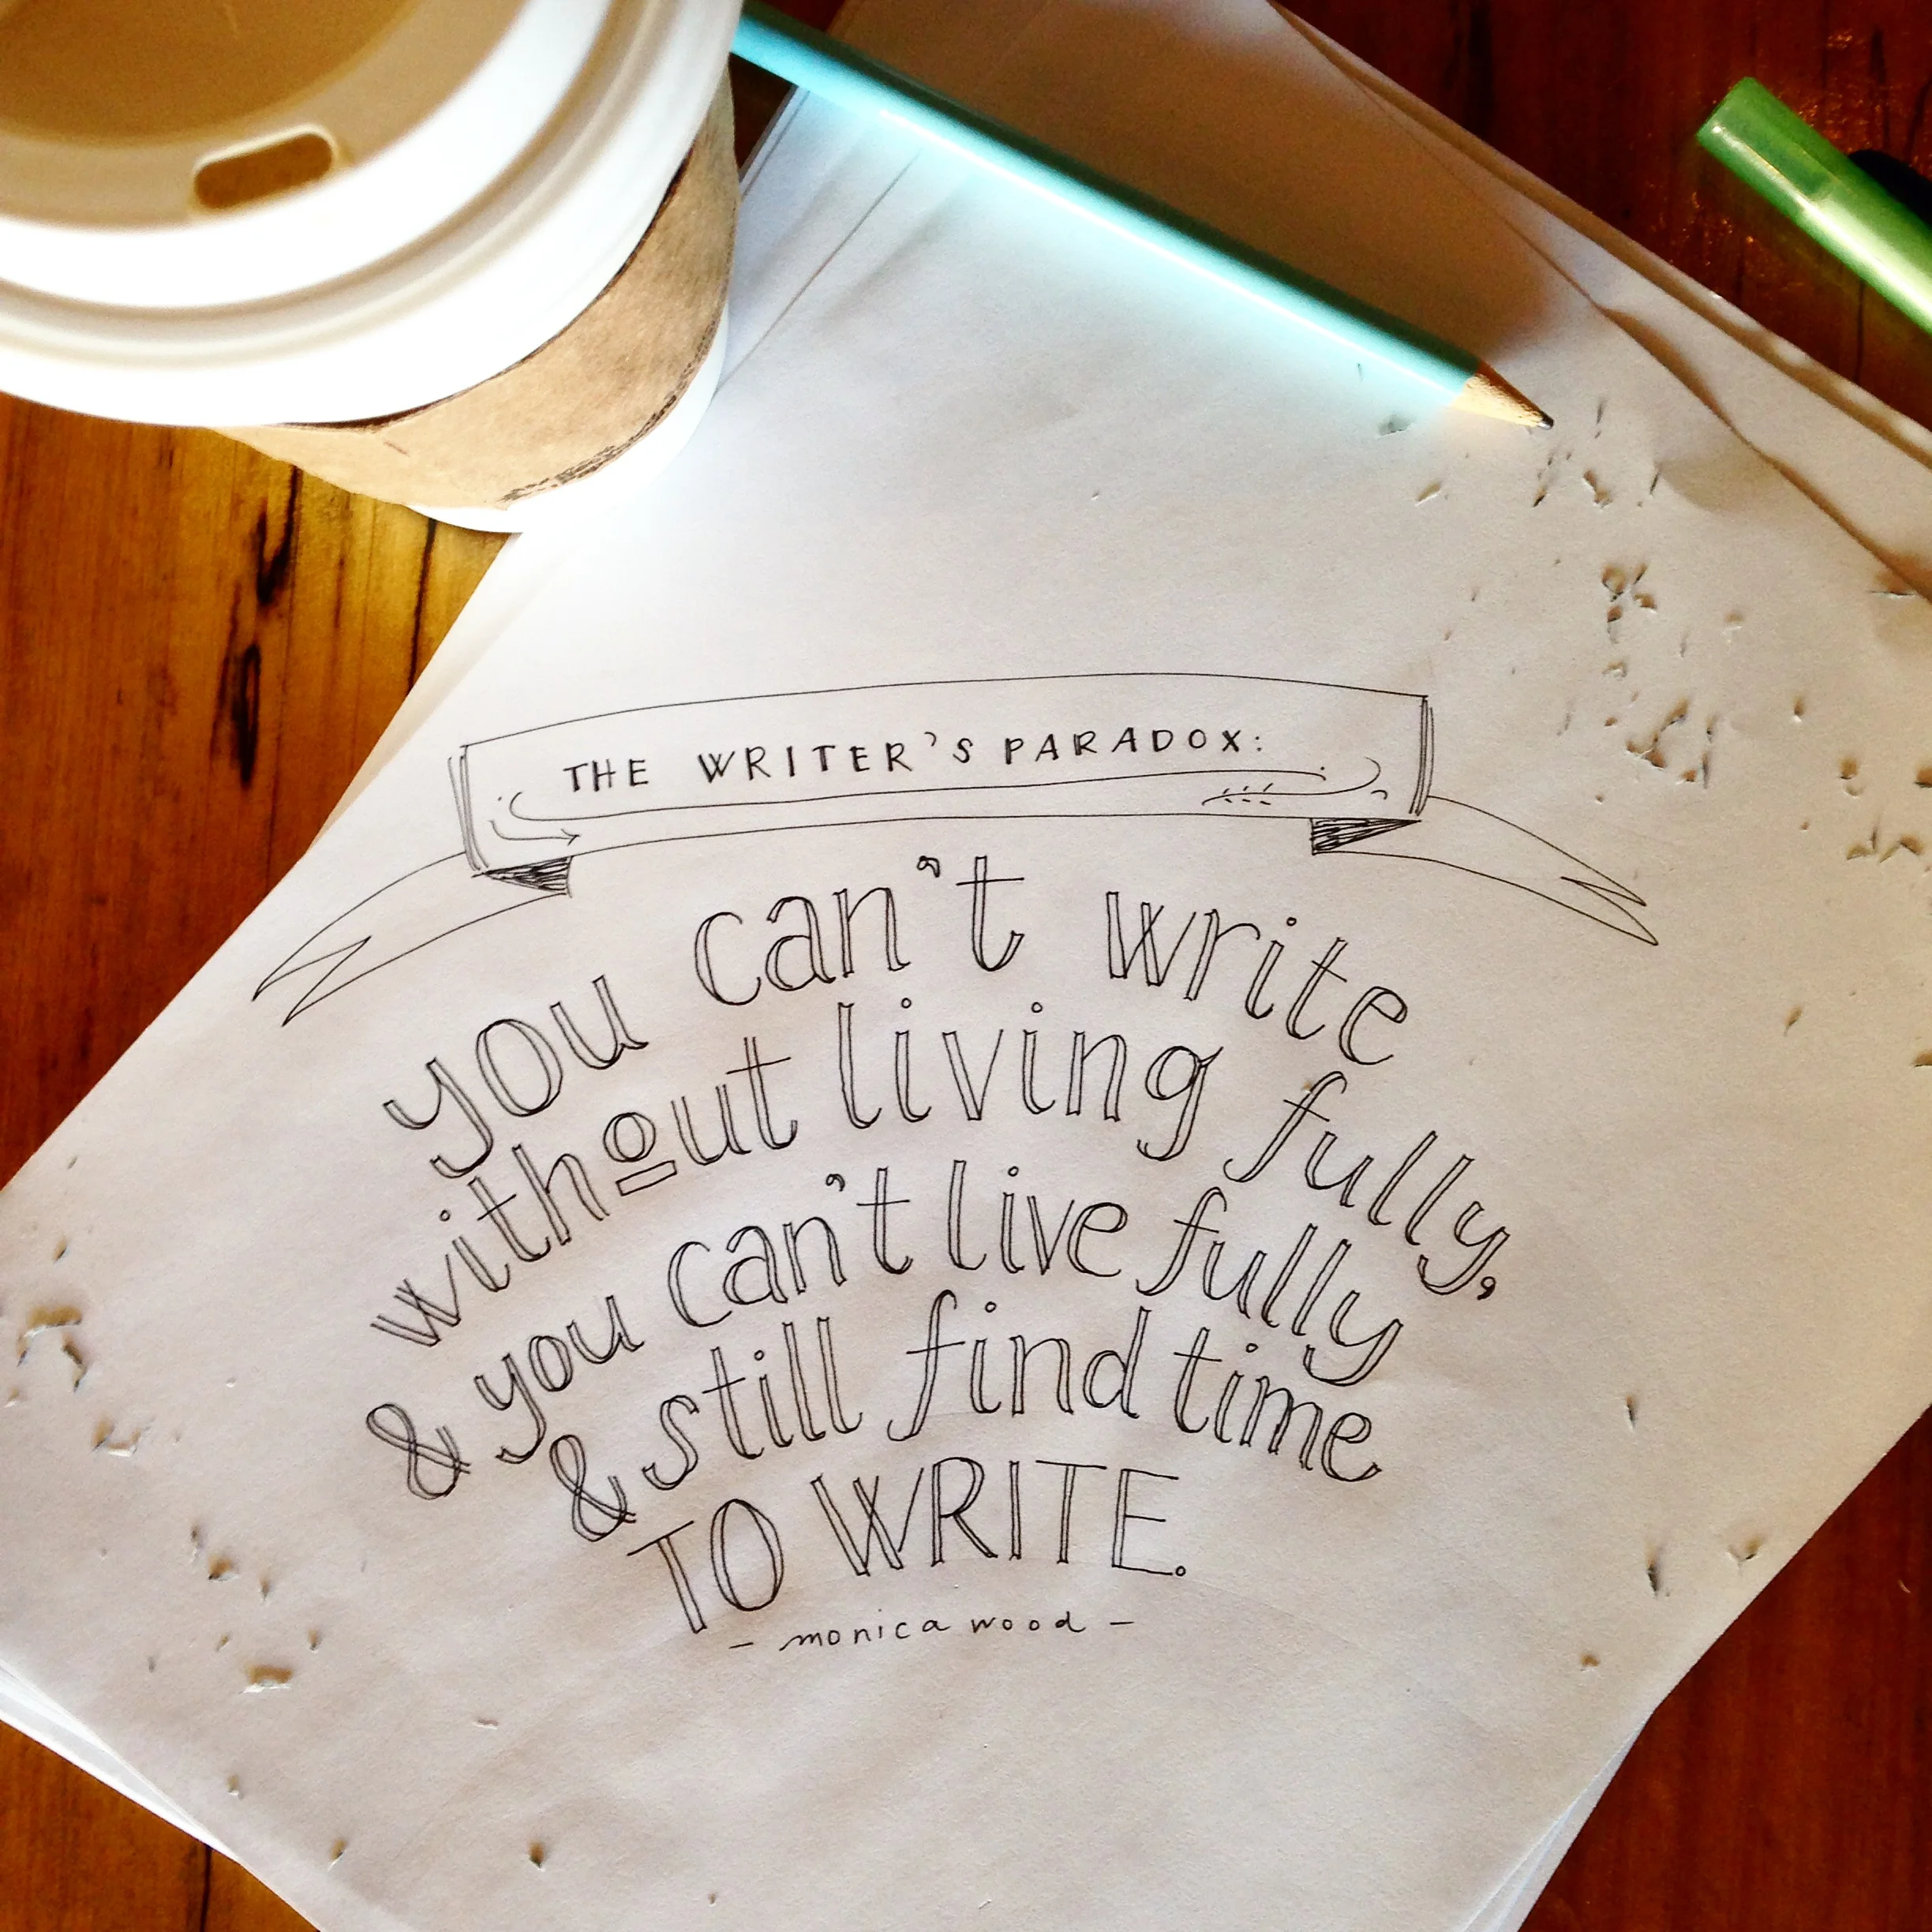 THE WRITER'S PARADOX:
you can't write
without living fully,
& you can't live fully
& still find time
TO WRITE.
- monica wood -